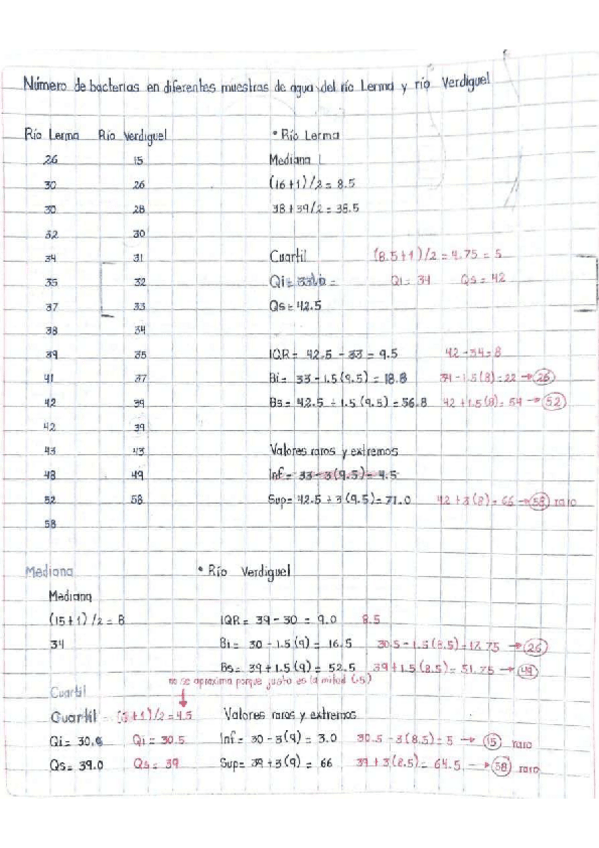 Número de bacterias en diferentes muestras de agua del río Lerma y río Verdiguel
Río Lerma Río Verdiguel • Río Lerma
26 15 Mediana
30 26 (16+1)/2 = 8.5
30 28 38+39/2 = 38.5
32 30
34 31 Cuartil (8.5+1)/2 = 4.75 = 5
35 32 Qi = Qi = 34 Qs = 42
37 33 Qs = 42.5
38 34
39 35 IQR = 42.5 - 33 = 9.5 42 - 34 = 8
41 37 Bi = 33 - 1.5(9.5) = 18.8 34 - 1.5(8) = 22 → 26
42 39 Bs = 42.5 + 1.5(9.5) = 56.8 42 + 1.5(8) = 54 → 52
42 39
43 43 Valores raros y extremos
48 49 Inf = 33 - 3(9.5) = 4.5
52 58 Sup = 42.5 + 3(9.5) = 71.0 42 + 3(8) = 66 → 58 raro
58
Mediana • Río Verdiguel
Mediana
(15+1)/2 = 8 IQR = 39 - 30 = 9.0 8.5
34 Bi = 30 - 1.5(9) = 16.5 30.5 - 1.5(8.5) = 17.75 → 26
Bs = 39 + 1.5(9) = 52.5 39 + 1.5(8.5) = 51.75 → 49
no se aproxima porque justo es la mitad (.5)
Cuartil
Cuartil = (8+1)/2 = 4.5 Valores raros y extremos
Qi = 30.5 Qi = 30.5 Inf = 30 - 3(9) = 3.0 30.5 - 3(8.5) = 5 → 15 raro
Qs = 39.0 Qs = 39 Sup = 39 + 3(9) = 66 39 + 3(8.5) = 64.5 → 58 raro